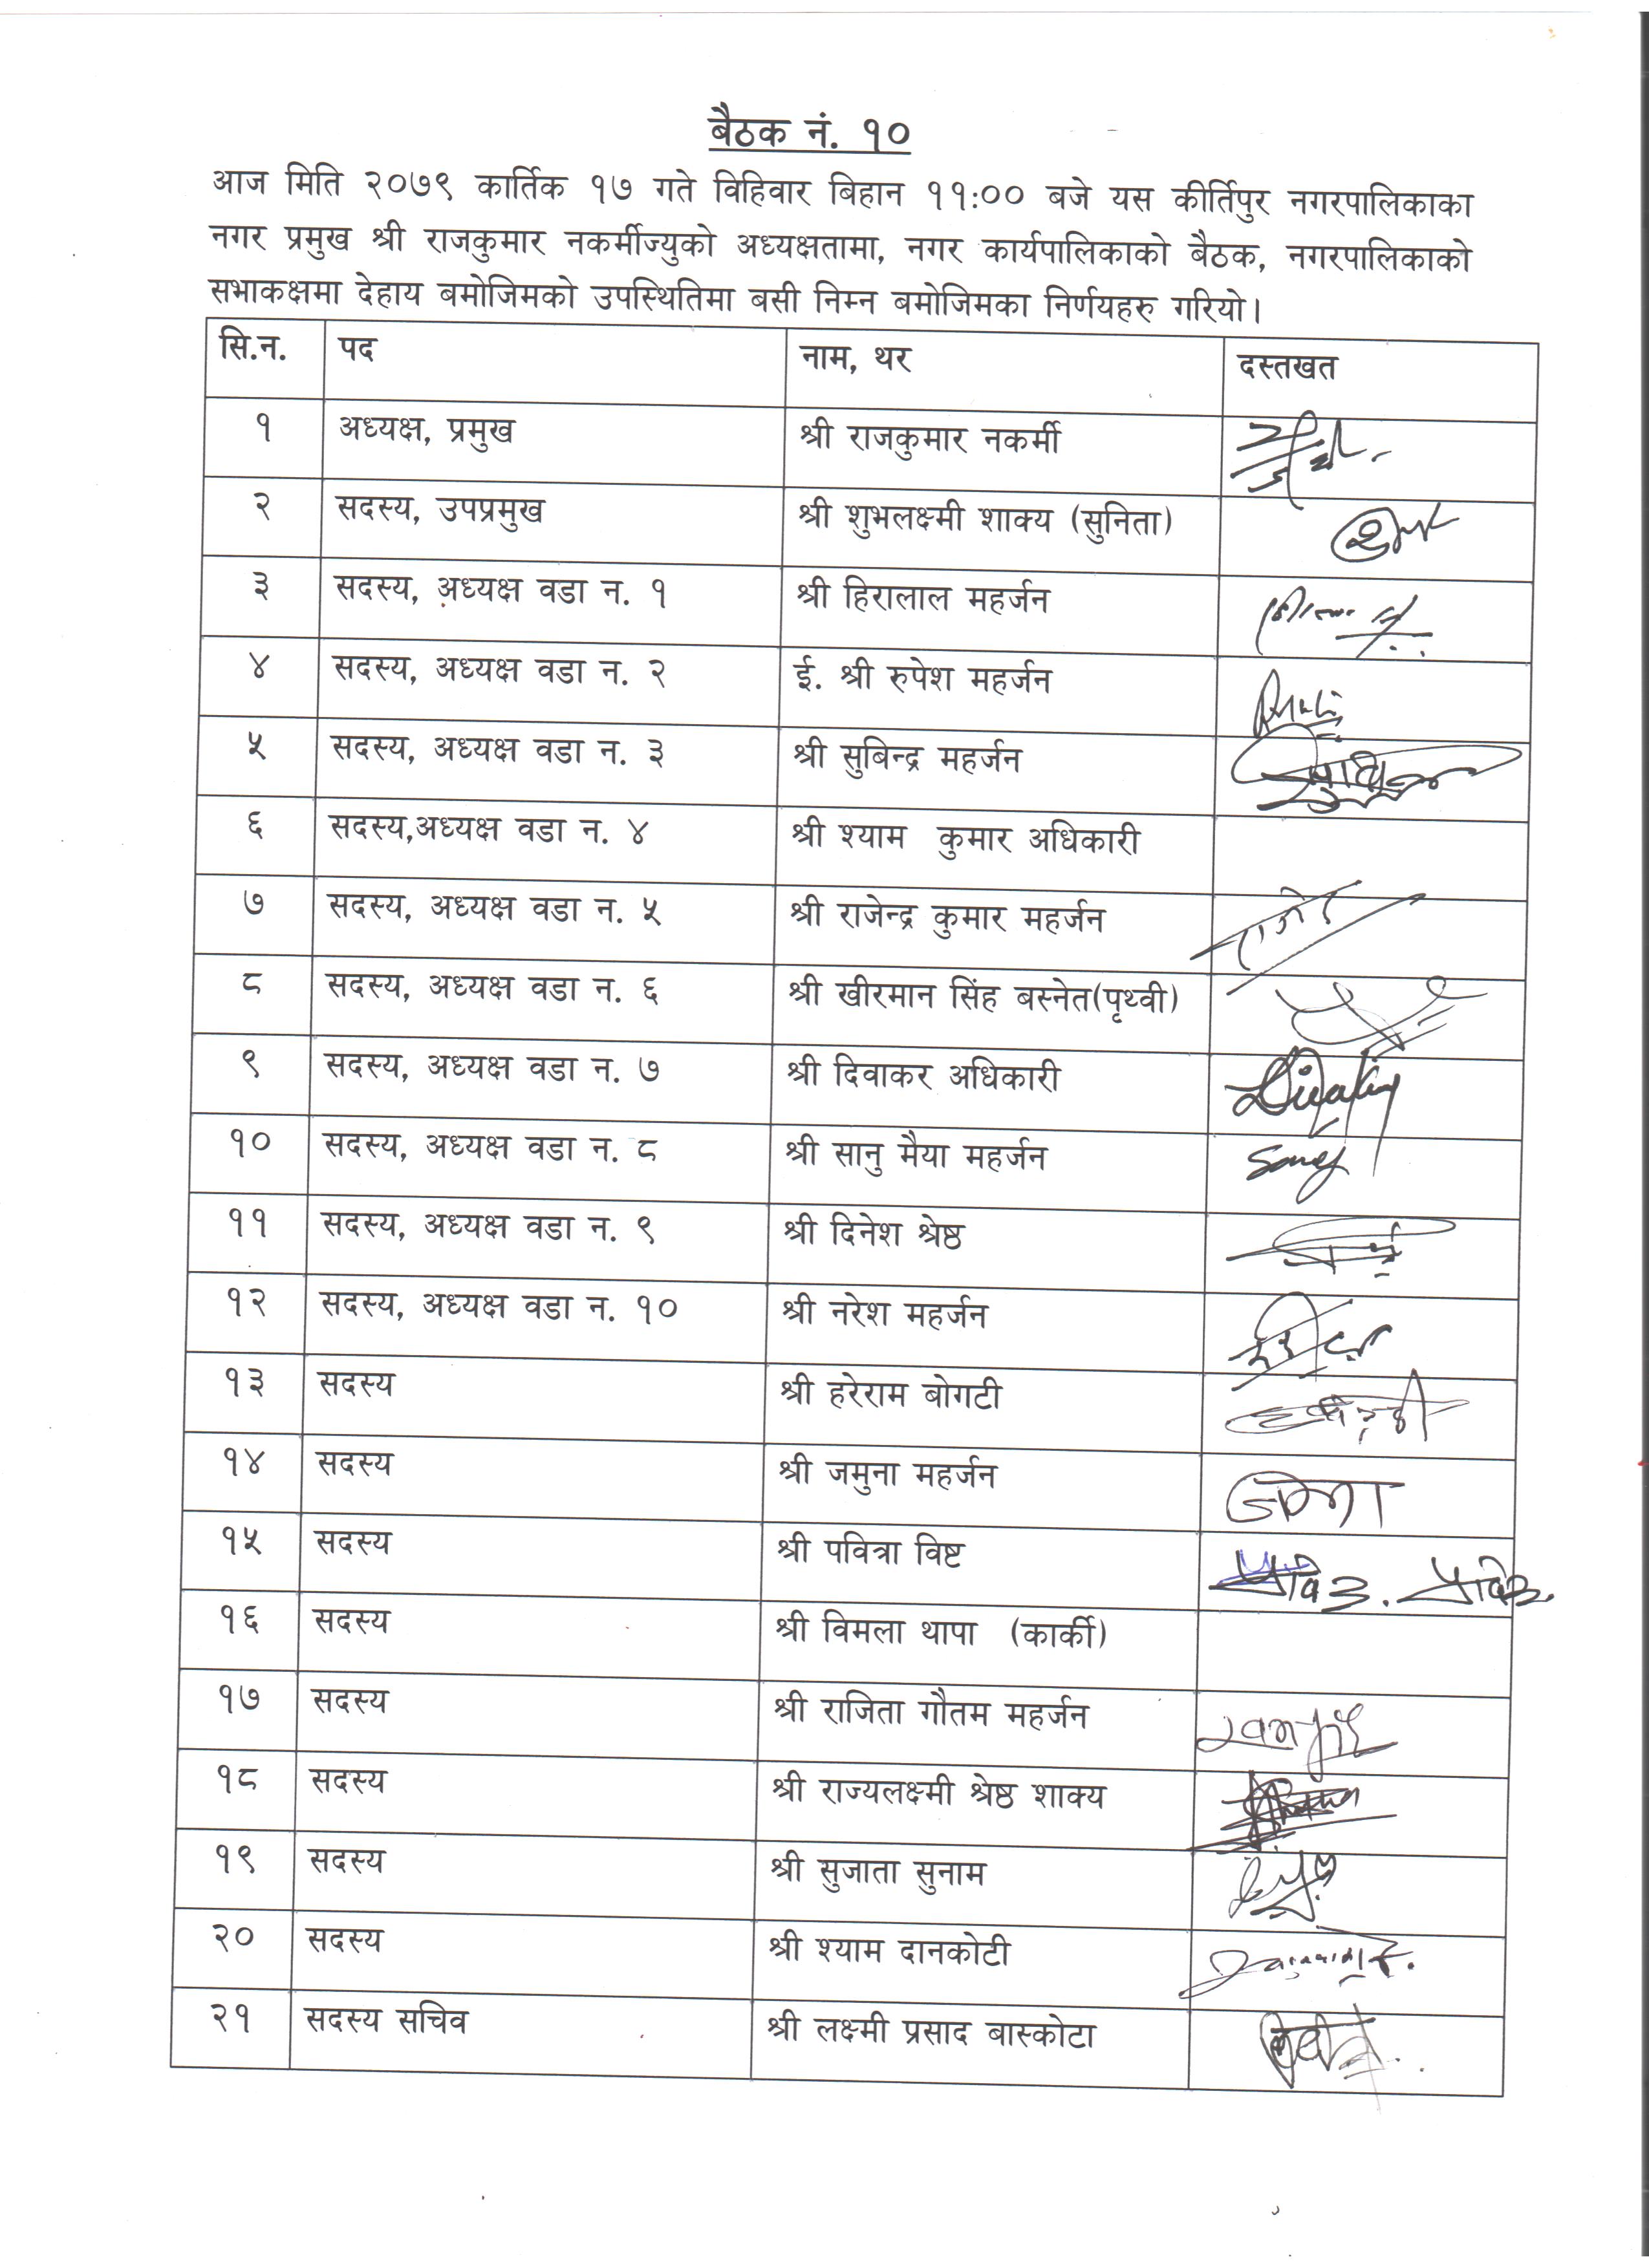 बैठक नं. १०
आज मिति २०७९ कार्तिक १७ गते विहिवार बिहान ११:०० बजे यस कीर्तिपुर नगरपालिकाका
नगर प्रमुख श्री राजकुमार नकर्मीज्युको अध्यक्षतामा, नगर कार्यपालिकाको बैठक, नगरपालिकाको
सभाकक्षमा देहाय बमोजिमको उपस्थितिमा बसी निम्न बमोजिमका निर्णयहरु गरियो।
सि.न. पद नाम, थर दस्तखत
१ अध्यक्ष, प्रमुख श्री राजकुमार नकर्मी
२ सदस्य, उपप्रमुख श्री शुभलक्ष्मी शाक्य (सुनिता)
३ सदस्य, अध्यक्ष वडा न. १ श्री हिरालाल महर्जन
४ सदस्य, अध्यक्ष वडा न. २ ई. श्री रुपेश महर्जन
५ सदस्य, अध्यक्ष वडा न. ३ श्री सुबिन्द्र महर्जन
६ सदस्य,अध्यक्ष वडा न. ४ श्री श्याम कुमार अधिकारी
७ सदस्य, अध्यक्ष वडा न. ५ श्री राजेन्द्र कुमार महर्जन
८ सदस्य, अध्यक्ष वडा न. ६ श्री खीरमान सिंह बस्नेत(पृथ्वी)
९ सदस्य, अध्यक्ष वडा न. ७ श्री दिवाकर अधिकारी
१० सदस्य, अध्यक्ष वडा न. ८ श्री सानु मैया महर्जन
११ सदस्य, अध्यक्ष वडा न. ९ श्री दिनेश श्रेष्ठ
१२ सदस्य, अध्यक्ष वडा न. १० श्री नरेश महर्जन
१३ सदस्य श्री हरेराम बोगटी
१४ सदस्य श्री जमुना महर्जन
१५ सदस्य श्री पवित्रा विष्ट
१६ सदस्य श्री विमला थापा (कार्की)
१७ सदस्य श्री राजिता गौतम महर्जन
१८ सदस्य श्री राज्यलक्ष्मी श्रेष्ठ शाक्य
१९ सदस्य श्री सुजाता सुनाम
२० सदस्य श्री श्याम दानकोटी
२१ सदस्य सचिव श्री लक्ष्मी प्रसाद बास्कोटा